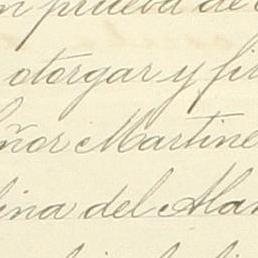 n prueba de
otorgar y fir
eñor Martine
lina del Alam